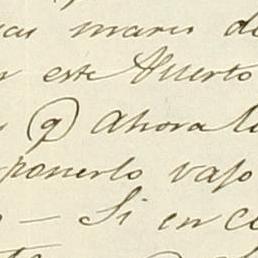 mares d
n este Puerto
q Ahora l
ponerlo vajo
— Si en co